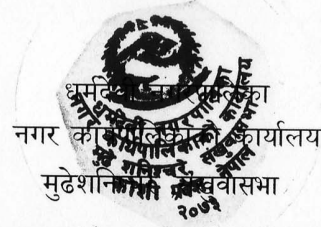 धर्मदेवी नगरपालिका
नगर कार्यपालिकाको कार्यालय
मुढेशनिश्चरे, संखुवासभा
कोशी प्रदेश, नेपाल
२०७३